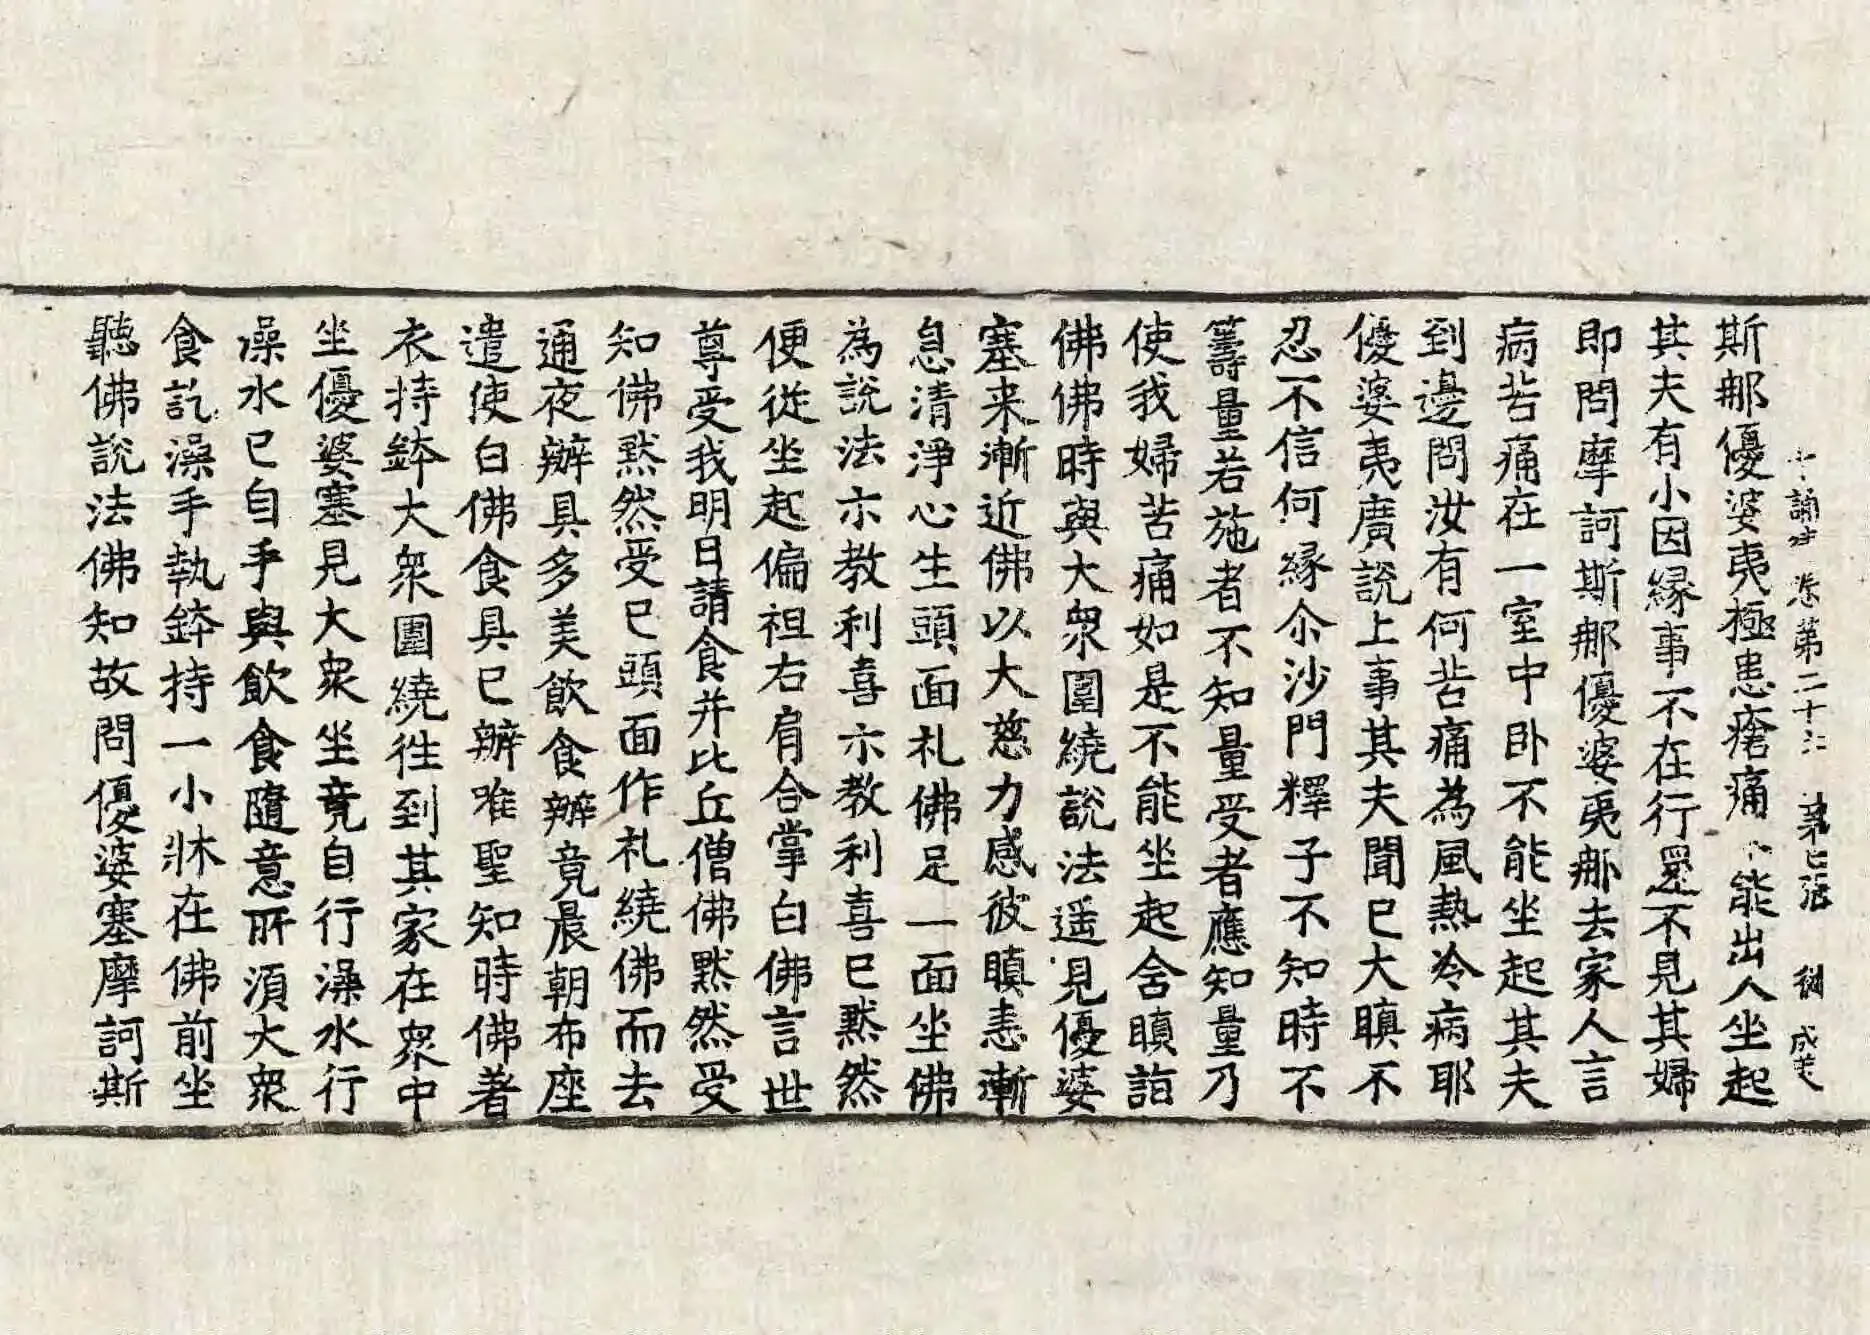 十誦律 卷第二十六 第七張 㓻 成美
斯那優婆夷極患瘡痛不能出入坐起
其夫有小因緣事不在行還不見其婦
即問摩訶斯那優婆夷那去家人言
病苦痛在一室中卧不能坐起其夫
到邊問汝有何苦痛為風熱冷病耶
優婆夷廣說上事其夫聞已大瞋不
忍不信何緣尒沙門釋子不知時不
籌量若施者不知量受者應知量乃
使我婦苦痛如是不能坐起舍瞋詣
佛佛時與大眾圍繞說法遥見優婆
塞来漸近佛以大慈力感彼瞋恚漸
息清淨心生頭面礼佛足一面坐佛
為說法示教利喜示教利喜已默然
便從坐起偏袒右肩合掌白佛言世
尊受我明日請食并比丘僧佛默然受
知佛默然受已頭面作礼繞佛而去
通夜辦具多美飲食辦竟晨朝布座
遣使白佛食具已辦唯聖知時佛著
衣持鉢大眾圍繞往到其家在眾中
坐優婆塞見大眾坐竟自行澡水行
澡水已自手與飲食隨意所須大眾
食訖澡手執鉢持一小牀在佛前坐
聽佛說法佛知故問優婆塞摩訶斯